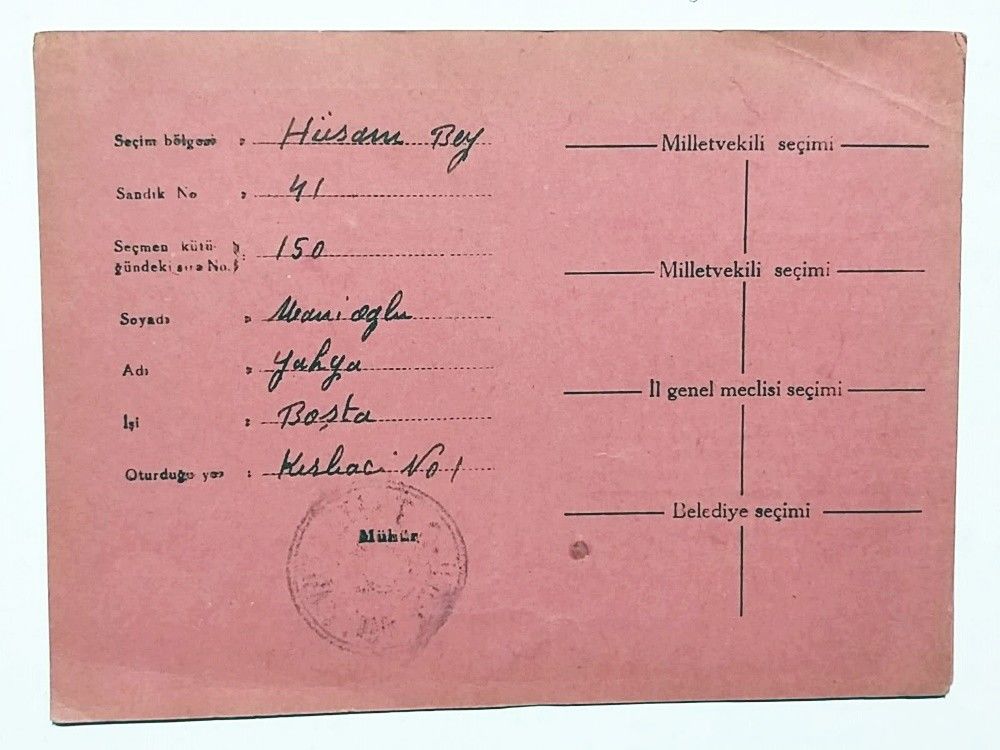 Seçim bölgesi : Hüsam Bey
Sandık No : 41
Seçmen kütü-
ğündeki sıra No. : 150
Soyadı :
Adı : Yahya
İşi : Boşta
Oturduğu yer : No 1
Mühür
Milletvekili seçimi
Milletvekili seçimi
İl genel meclisi seçimi
Belediye seçimi